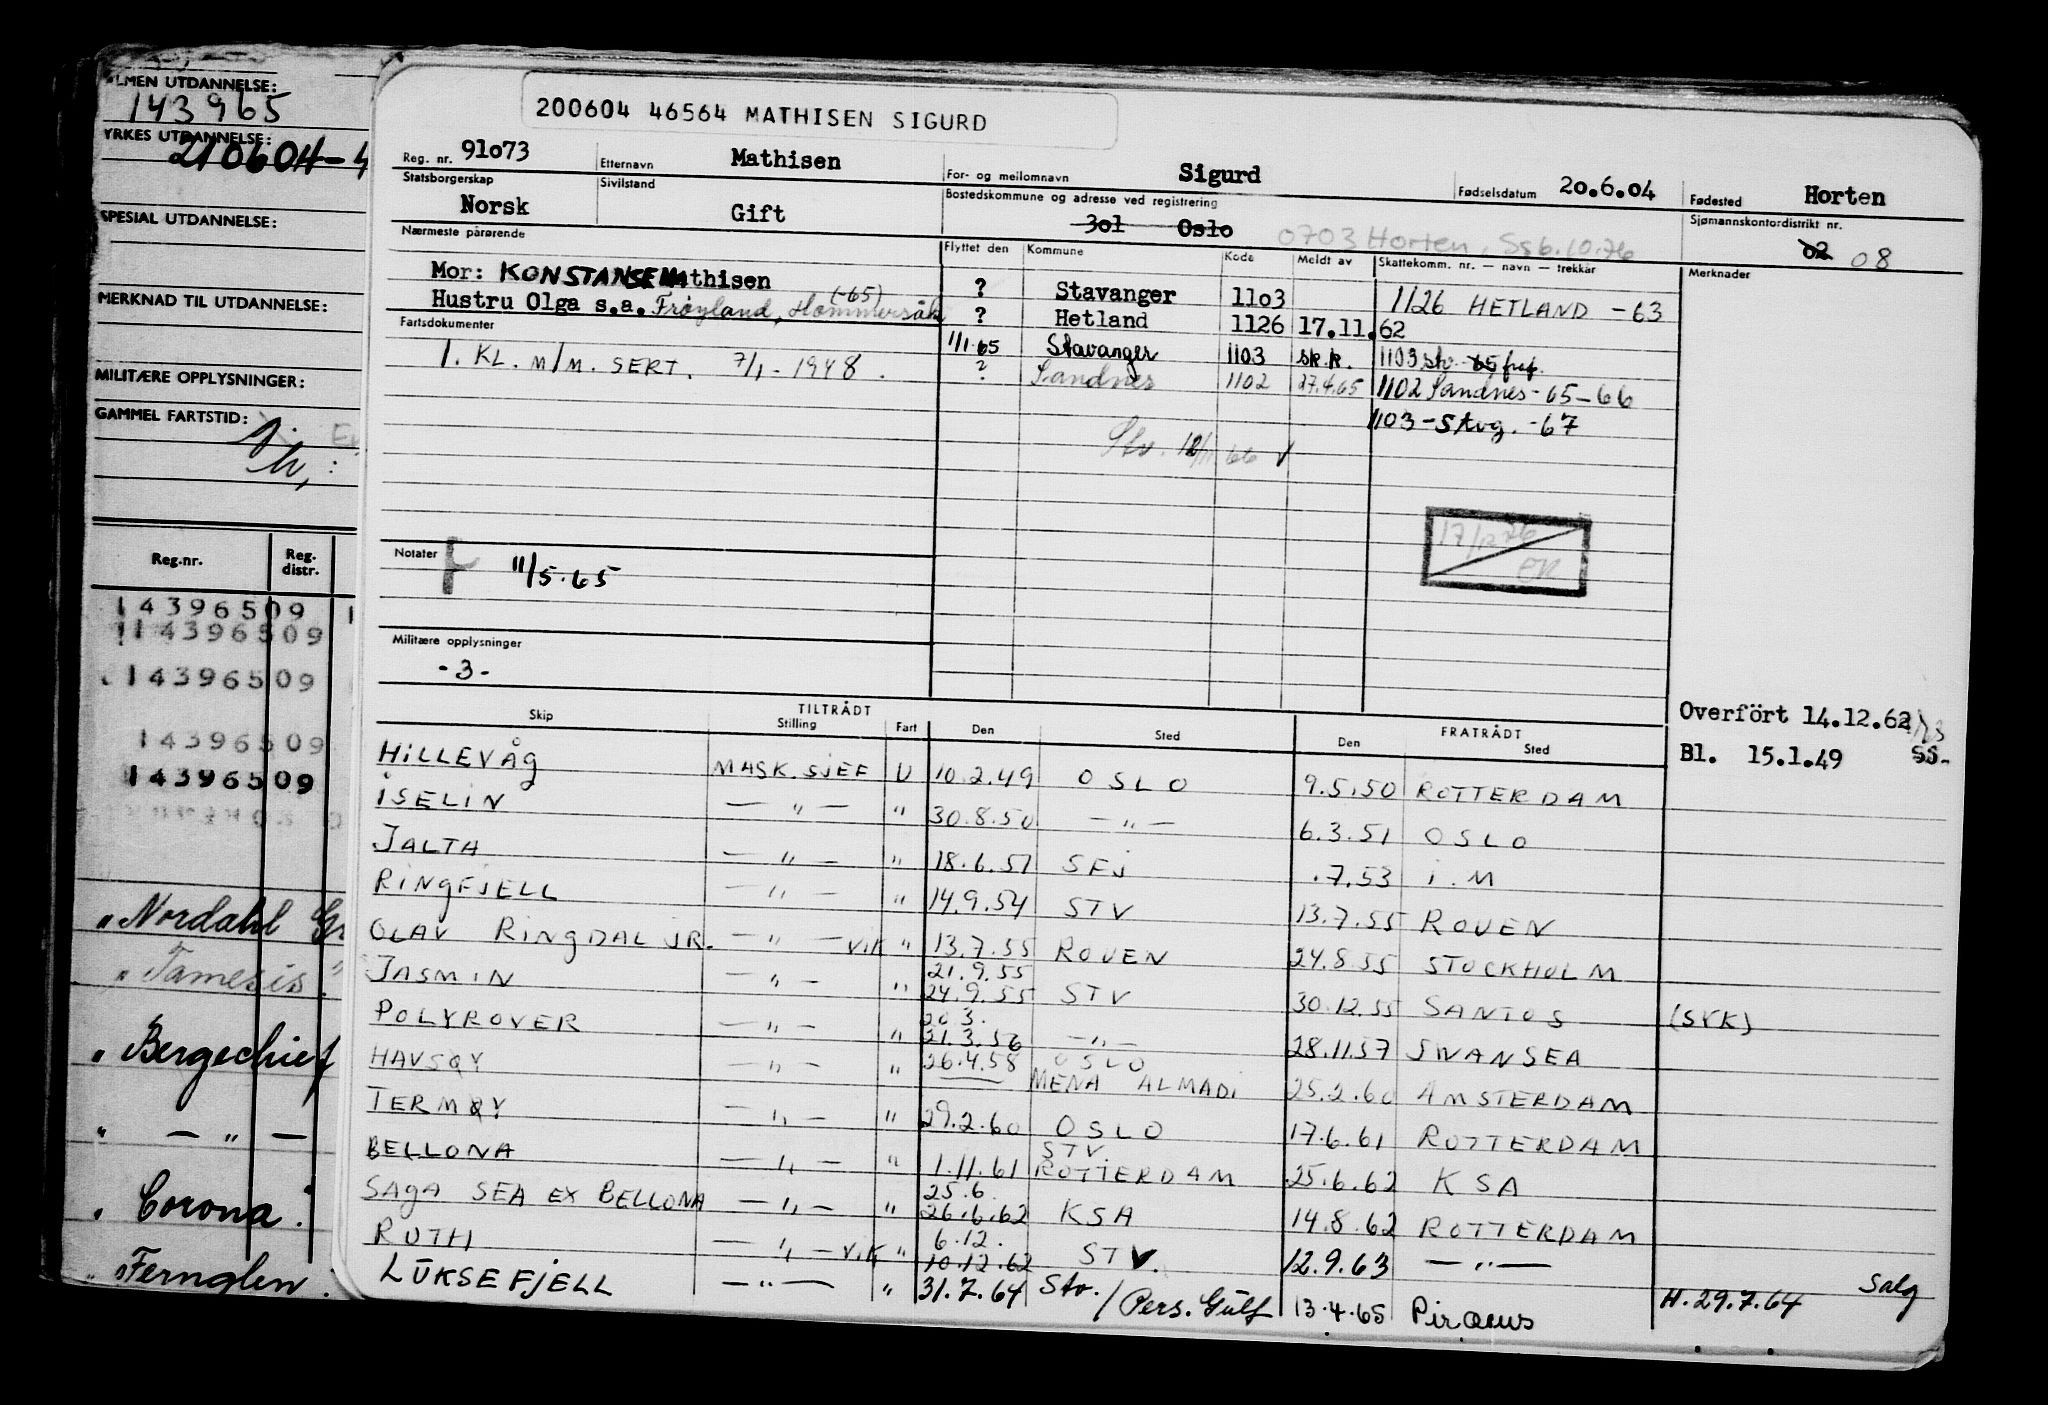 ALMEN UTDANNELSE:
143965
YRKES UTDANNELSE:
210604-4
SPESIAL UTDANNELSE:
MERKNAD TIL UTDANNELSE:
MILITÆRE OPPLYSNINGER:
GAMMEL FARTSTID:
Reg.nr. Reg. distr.
14396509
14396509
14396509
14396509
14396509
" Nordahl Gr
" Tamesis."
" Bergechief
" — " —
" Corona.
" Fernglen.
200604 46564 MATHISEN SIGURD
Reg. nr. 91o73 Etternavn Mathisen For- og mellomnavn Sigurd Fødselsdatum 20.6.04 Fødested Horten
Statsborgerskap Norsk Sivilstand Gift Bostedskommune og adresse ved registrering 3o1 Oslo 0703 Horten, Ss 6.10.76 Sjømannskontordistrikt nr. o2 08
Nærmeste pårørende Flyttet den Kommune Kode Meldt av Skattekomm. nr. — navn — trekkår Merknader
Mor: KONSTANSE Mathisen ? Stavanger 11o3 1126 HETLAND -63
Hustru Olga s.a. Frøyland, Hommersåk (-65) ? Hetland 1126 17.11.62
Fartsdokumenter 1/1.65 Stavanger 1103 sk.k. 1103 Stv. 65
1. KL. M/M. SERT. 7/1-1948. ? Sandnes 1102 27.4.65 1102 Sandnes-65-66
1103-Stvg.-67
Stv. 12/11 66
17/12 76
Notater 11/5.65
Militære opplysninger
-3-
Overført 14.12.62
Bl. 15.1.49 SS-
TILTRÅDT FRATRÅDT
Skip Stilling Fart Den Sted Den Sted
HILLEVÅG MASK.SJEF U 10.2.49 OSLO 9.5.50 ROTTERDAM
ISELIN — " — " 30.8.50 — " — 6.3.51 OSLO
JALTA — " — " 18.6.51 SFJ .7.53 I.M
RINGFJELL — " — " 14.9.54 STV 13.7.55 ROUEN
OLAV RINGDAL JR. — " — VIK " 13.7.55 ROUEN 24.8.55 STOCKHOLM
JASMIN — " — " 21.9.55 24.9.55 STV 30.12.55 SANTOS (SVK)
POLYROVER — " — " 20.3. 21.3.56 — " — 28.11.57 SWANSEA
HAVSØY — " — " 26.4.58 OSLO MENA ALMADI 25.2.60 AMSTERDAM
TERMØY — " — " 29.2.60 OSLO 17.6.61 ROTTERDAM
BELLONA — " — " 1.11.61 STV. ROTTERDAM 25.6.62 KSA
SAGA SEA EX BELLONA — " — " 25.6. 26.6.62 KSA 14.8.62 ROTTERDAM
RUTH — " — VIK " 6.12. 10.12.62 STV. 12.9.63 — " —
LUKSEFJELL — " — " 31.7.64 Stv. / Pers. Gulf 13.4.65 Piraeus H.29.7.64 Salg